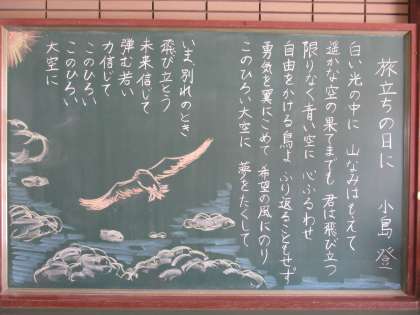 旅立ちの日に　小島 登
白い光の中に　山なみはもえて
遥かな空の果てまでも　君は飛び立つ
限りなく青い空に　心ふるわせ
自由をかける鳥よ　ふり返ることもせず
勇気を翼にこめて　希望の風にのり
このひろい大空に　夢をたくして
いま、別れのとき
飛び立とう
未来信じて
弾む若い
力信じて
このひろい
このひろい
大空に